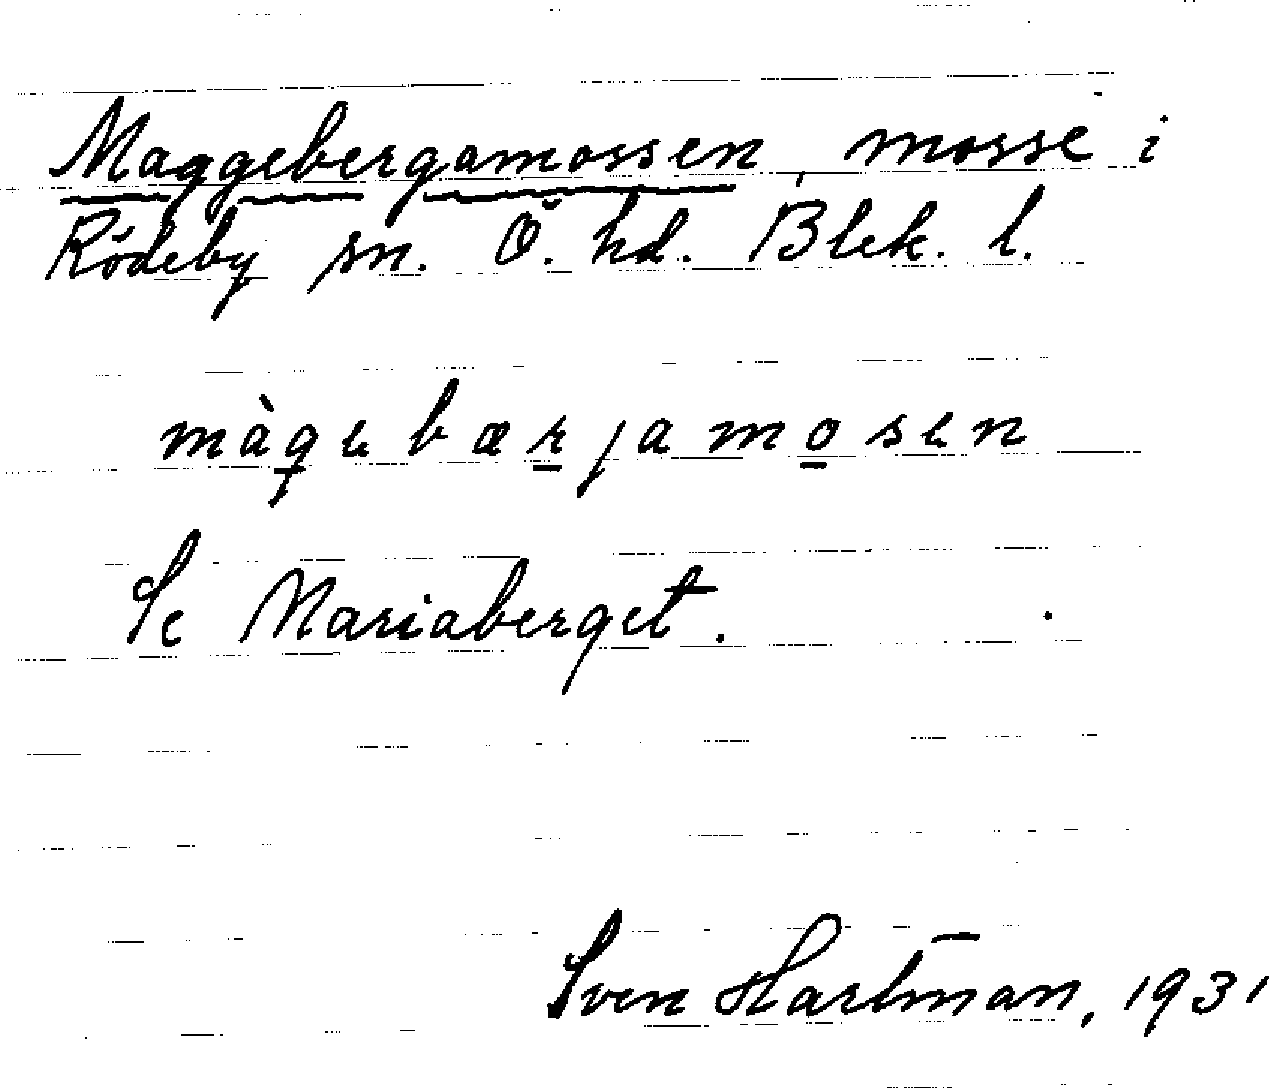 Maggebergamossen, mosse i
Rödeby sn. Ö. hd. Blek. l.
màgebærjamosen
Se Mariaberget.
Sven Hartman, 1931